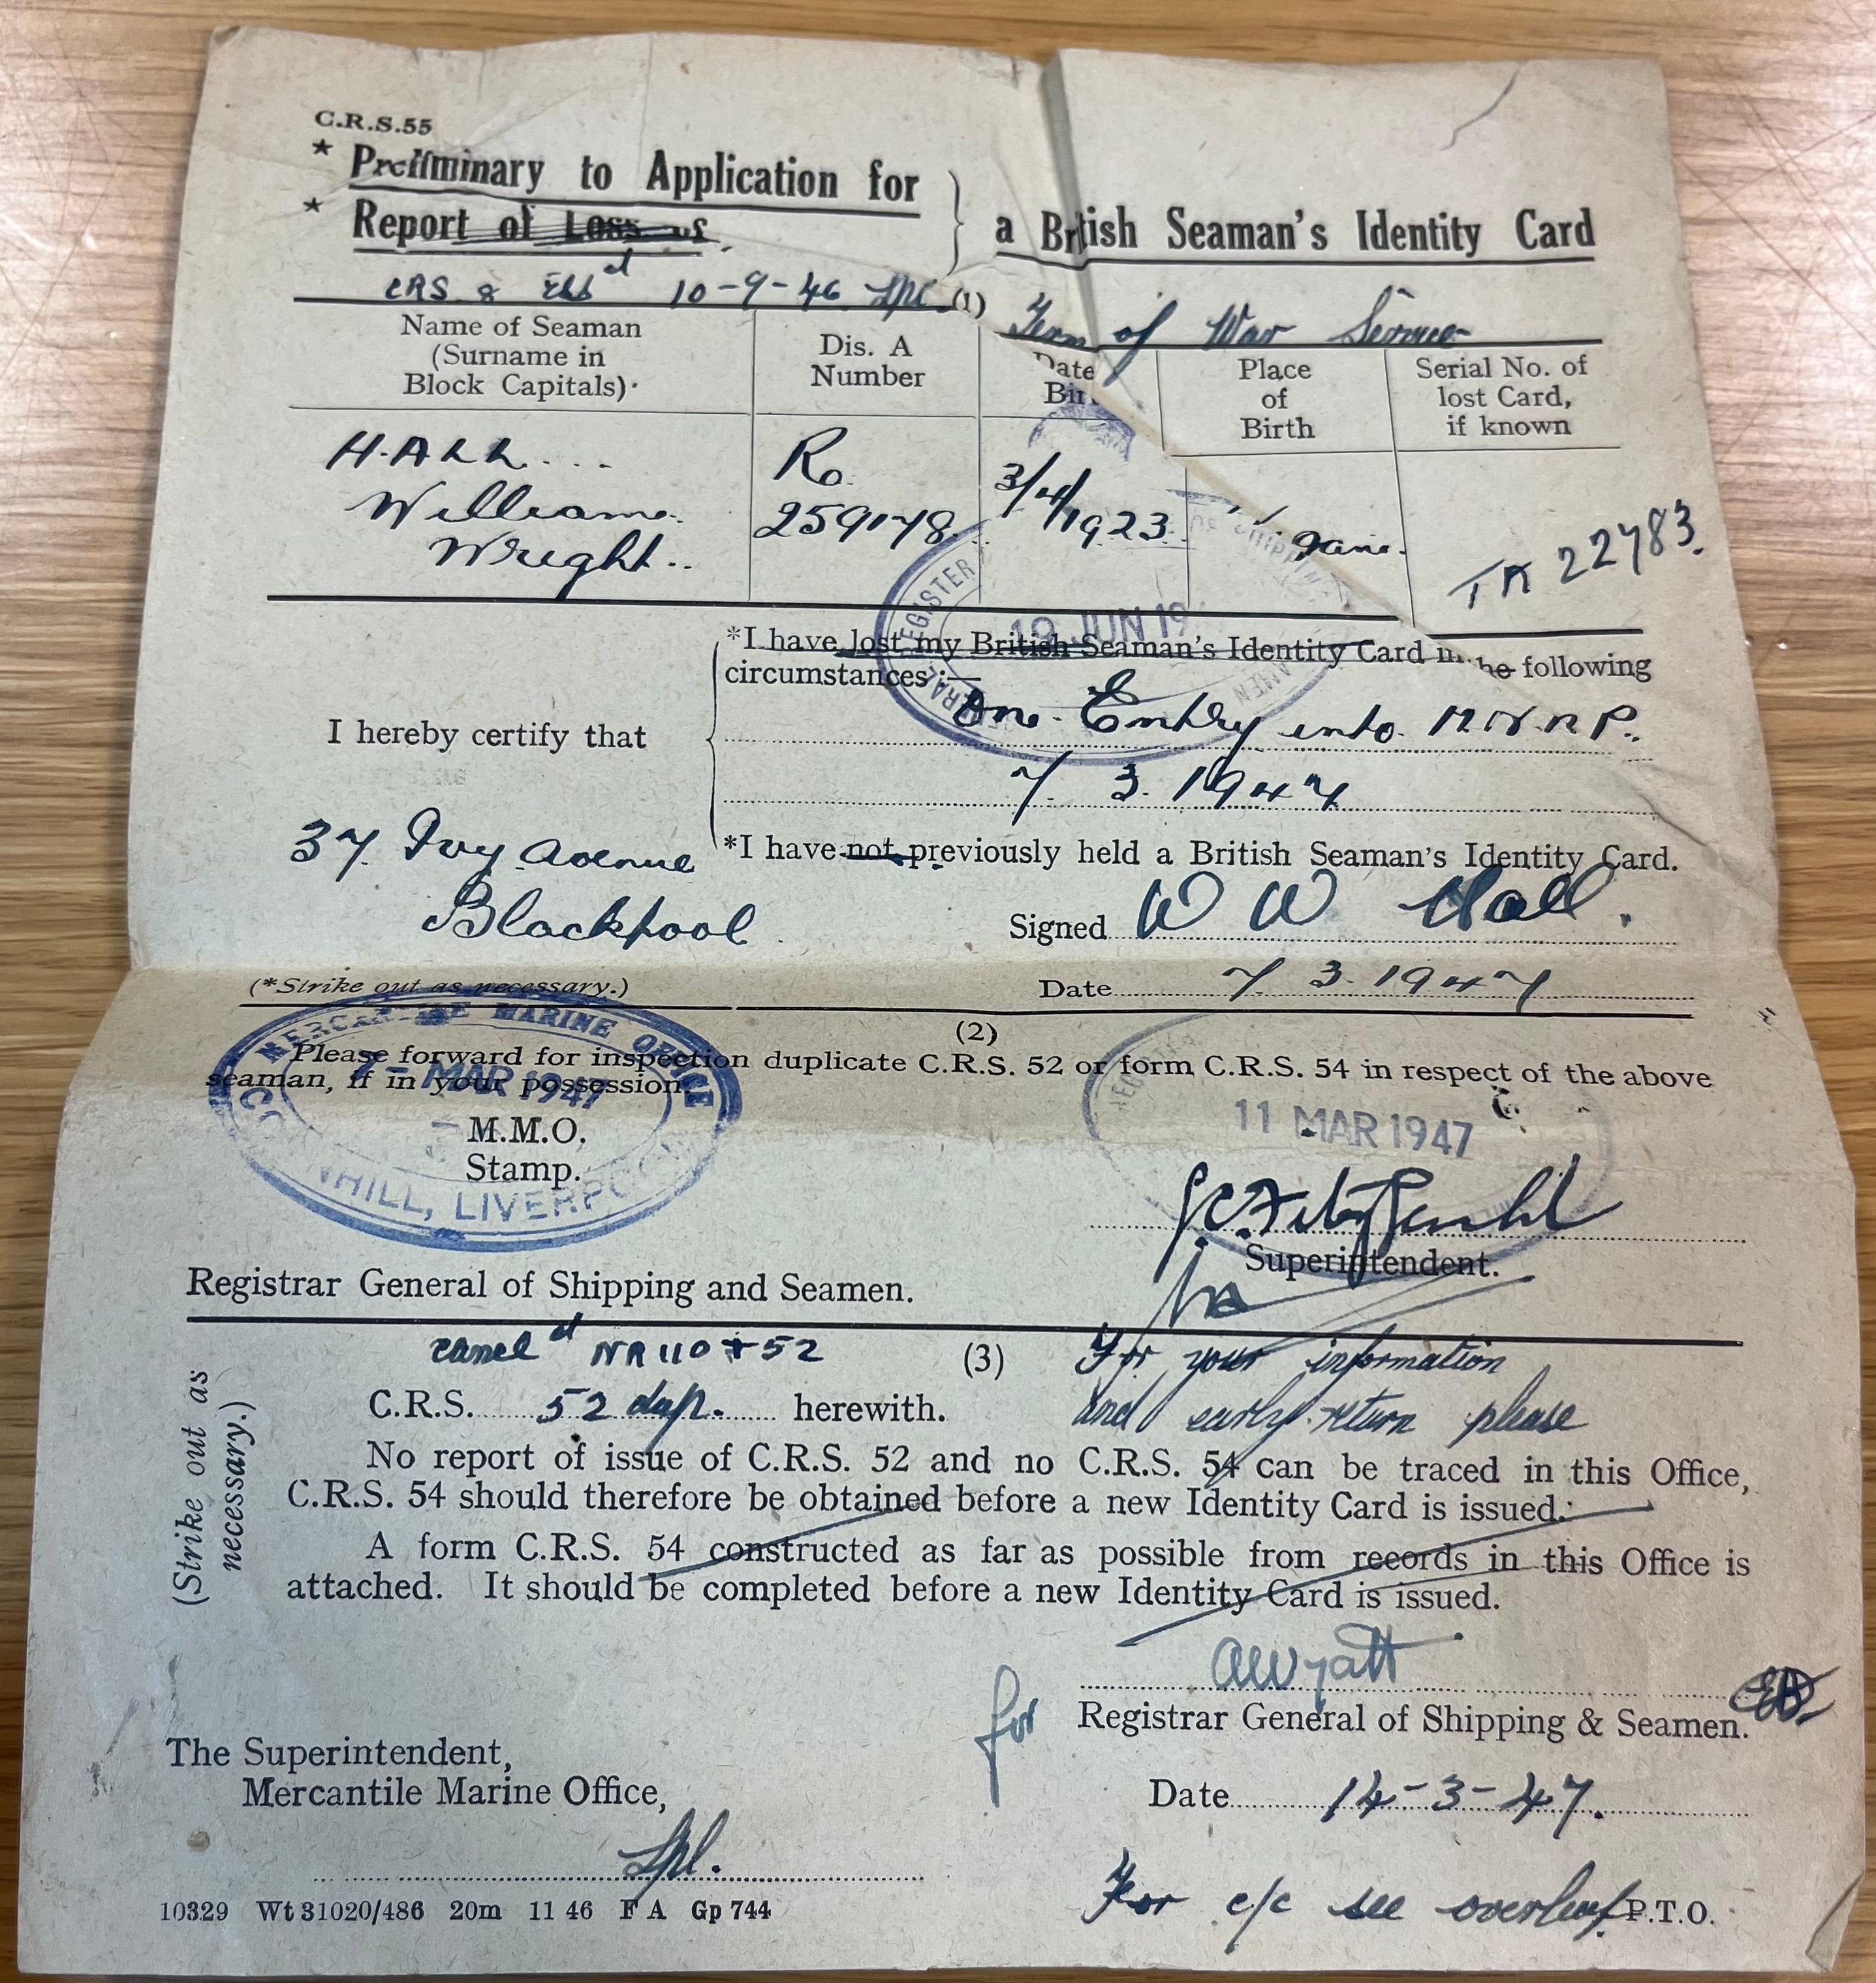 C.R.S.55
* Preliminary to Application for
* Report of Loss of
} a British Seaman's Identity Card
CRS 8 10-9-46 Lpl. (1) of War Service
Name of Seaman
(Surname in
Block Capitals)
Dis. A
Number
Date
Bir
Place
of
Birth
Serial No. of
lost Card,
if known
HALL...
William.
Wright..
R.
259178.
3/4/1923.
TR 22783.
GISTER
19 JUN 19
I hereby certify that
*I have lost my British Seaman's Identity Card in he following
circumstances :—
One. Entry into. M N R P.
7. 3. 1947
37. Ivy Avenue
Blackpool
*I have not previously held a British Seaman's Identity Card.
Signed W W Hall.
(*Strike out as necessary.)
Date 7. 3. 1947
(2)
Please forward for inspection duplicate C.R.S. 52 or form C.R.S. 54 in respect of the above
seaman, if in your possession.
MERCANTILE MARINE OFFICE
7 - MAR 1947
NHILL, LIVERPOOL
M.M.O.
Stamp.
11 MAR 1947
Superintendent.
Registrar General of Shipping and Seamen.
(Strike out as
necessary.)
Cancld NR 110 + 52
(3) For your information
and early return please
C.R.S. 52 dup. herewith.
No report of issue of C.R.S. 52 and no C.R.S. 54 can be traced in this Office,
C.R.S. 54 should therefore be obtained before a new Identity Card is issued.
A form C.R.S. 54 constructed as far as possible from records in this Office is
attached. It should be completed before a new Identity Card is issued.
AWyatt
for Registrar General of Shipping & Seamen.
The Superintendent,
Mercantile Marine Office,
Lpl.
Date 14-3-47.
For c/c see overleaf P.T.O.
10329 Wt 31020/486 20m 11 46 F A Gp 744